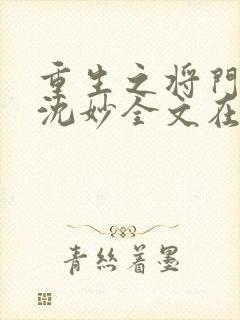 重生之将門
沈妙全文在
青絲着墨